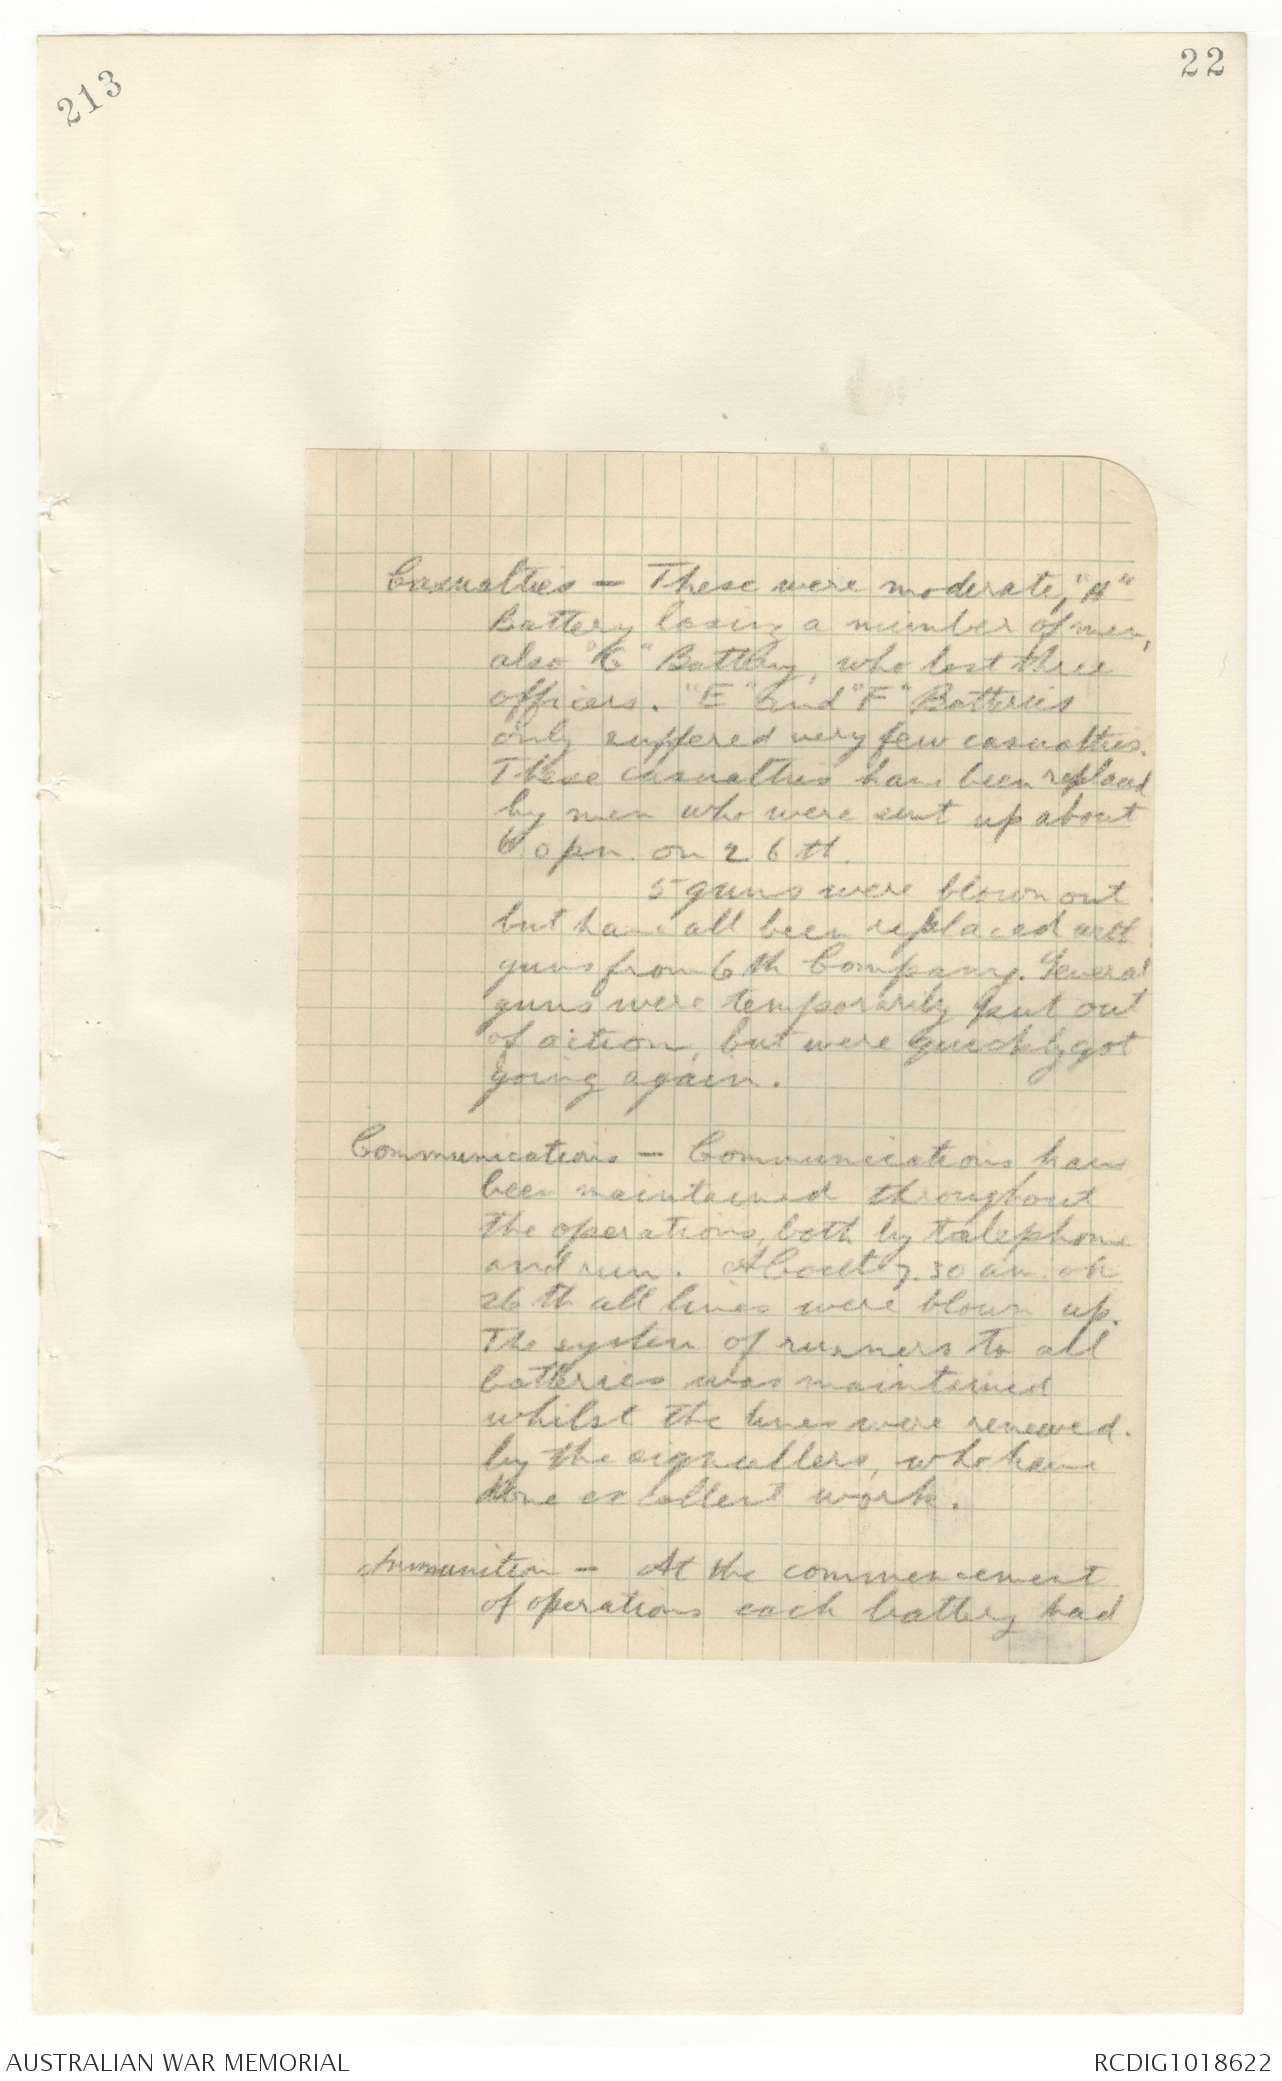 213
22
Casualties - These were moderate, "A"
Battery losing a number of men,
also "C" Battery, who lost three
officers. "E" and "F" Batteries
only suffered very few casualties.
These casualties have been replaced
by men who were sent up about
6 opn. on 26th.
5 guns were blown out
but have all been replaced with
guns from 6th Company. Several
guns were temporarily put out
of action, but were quickly got
going again.
Communications - Communications have
been maintained throughout
the operations, both by telephone
and run. About 7.30 am on
26th all lines were blown up.
The system of runners to all
batteries was maintained
whilst the lines were renewed.
by the signallers, who have
done excellent work.
Ammunition - At the commencement
of operations each battery had
AUSTRALIAN WAR MEMORIAL
RCDIG1018622